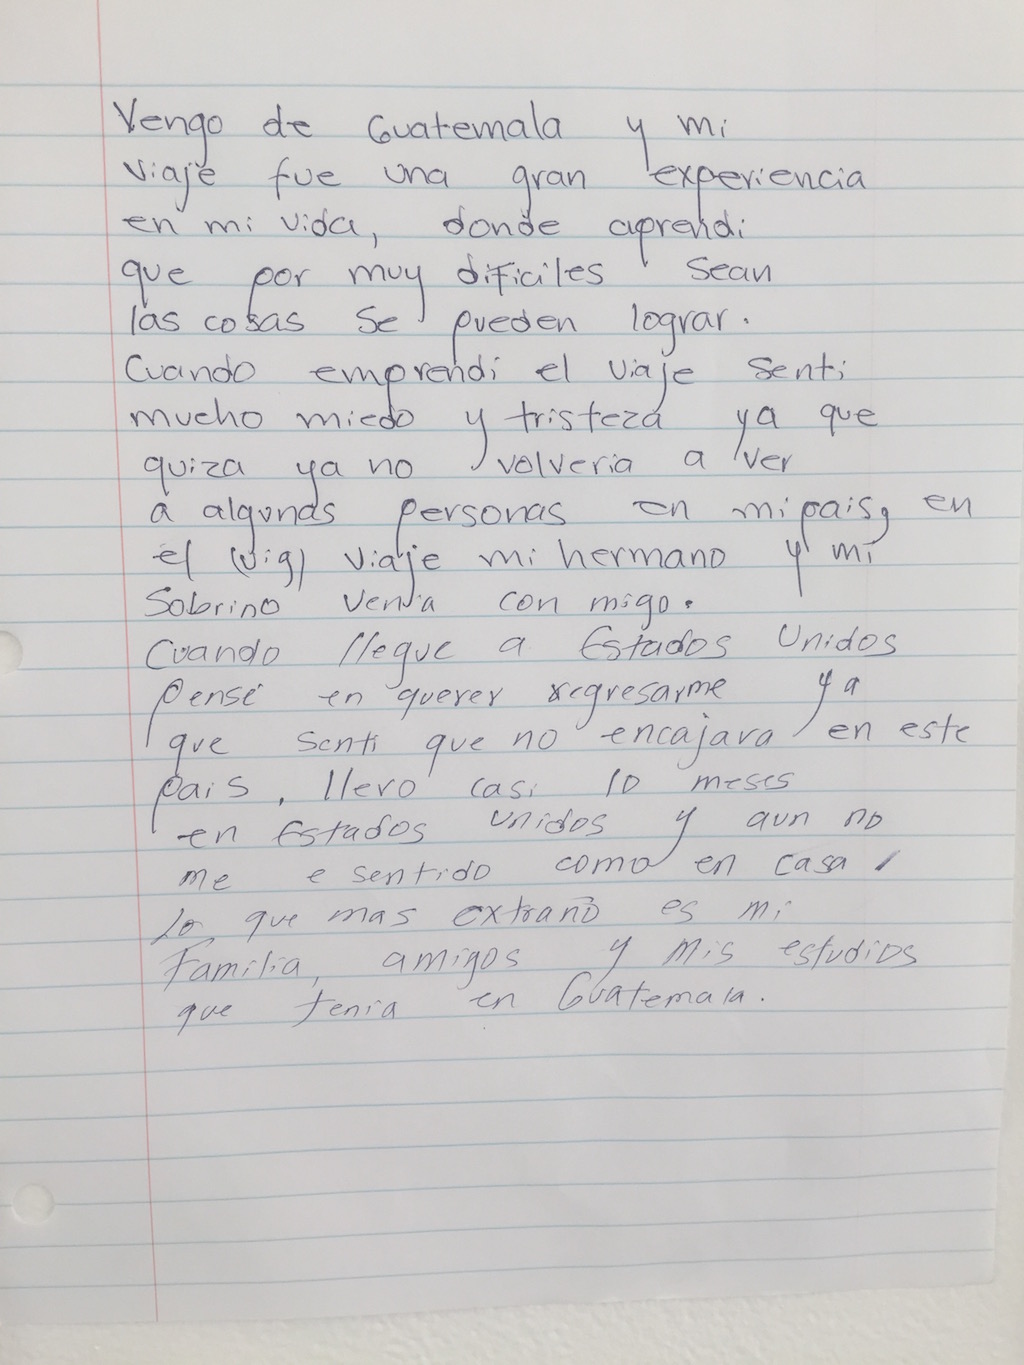 Vengo de Guatemala y mi
viaje fue una gran experiencia
en mi vida, donde aprendi
que por muy dificiles sean
las cosas se pueden lograr.
Cuando emprendi el viaje senti
mucho miedo y tristeza ya que
quiza ya no volveria a ver
a algunas personas en mi pais, en
el (vig) viaje mi hermano y mi
Sobrino venia con migo.
Cuando llegue a Estados Unidos
pensé en querer regresarme ya
que senti que no encajara en este
pais, llevo casi 10 meses
en Estados unidos y aun no
me e sentido como en casa,
Lo que mas extraño es mi
Familia, amigos y mis estudios
que tenia en Guatemala.